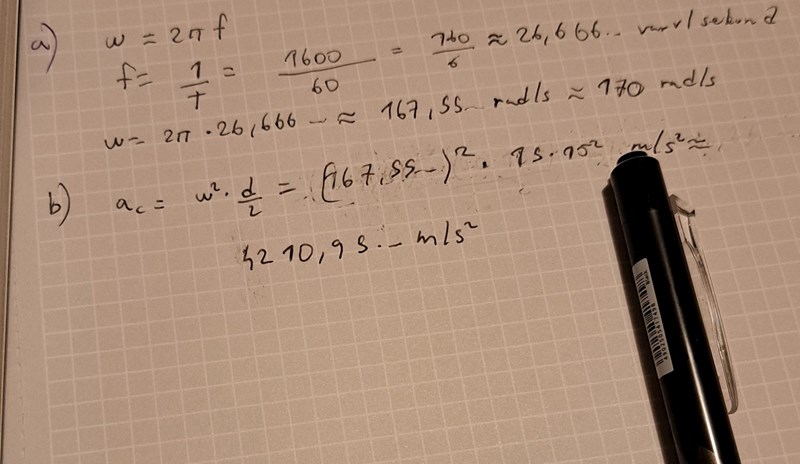 a) w = 2π f
f = 1/T = 1600/60 = 160/6 ≈ 26,666.. varv/sekund
w = 2π · 26,666 — ≈ 167,55— rad/s ≈ 170 rad/s
b) ac = w² · d/2 = (167,55—)² · 15·10² m/s² ≈
4210,95.— m/s²